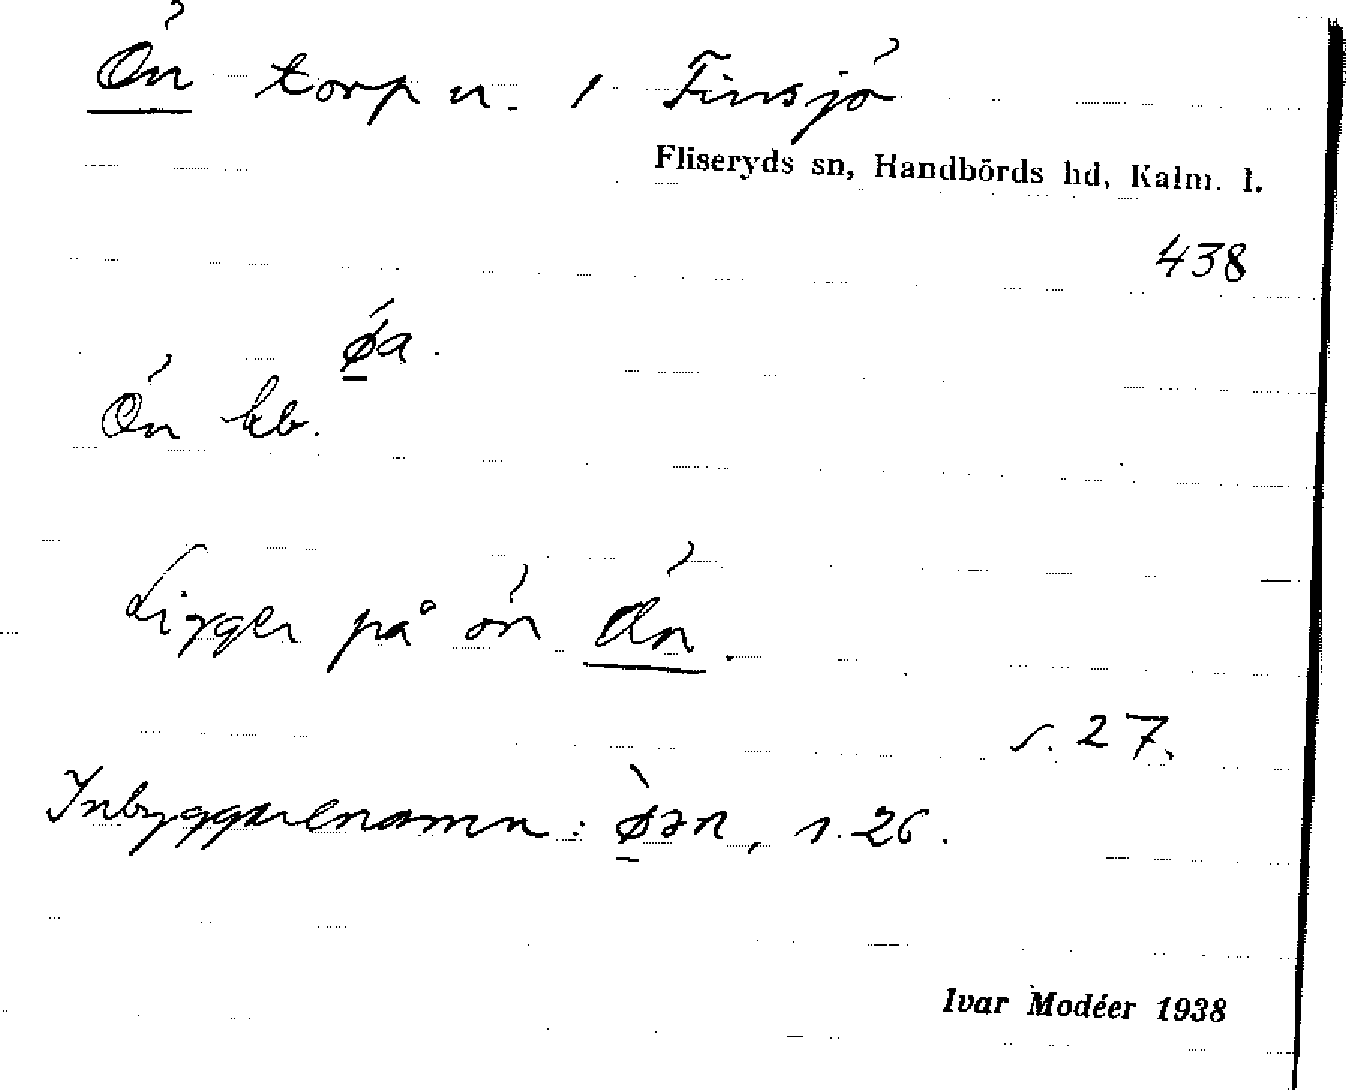 Ön torp u. 1 Finsjö
Fliseryds sn, Handbörds hd, Kalm. l.
438
ǿa.
Ön kb.
Ligger på ön Ön.
s. 27.
Inbyggarenamn: ø̀ən, s. 26.
Ivar Modéer 1938